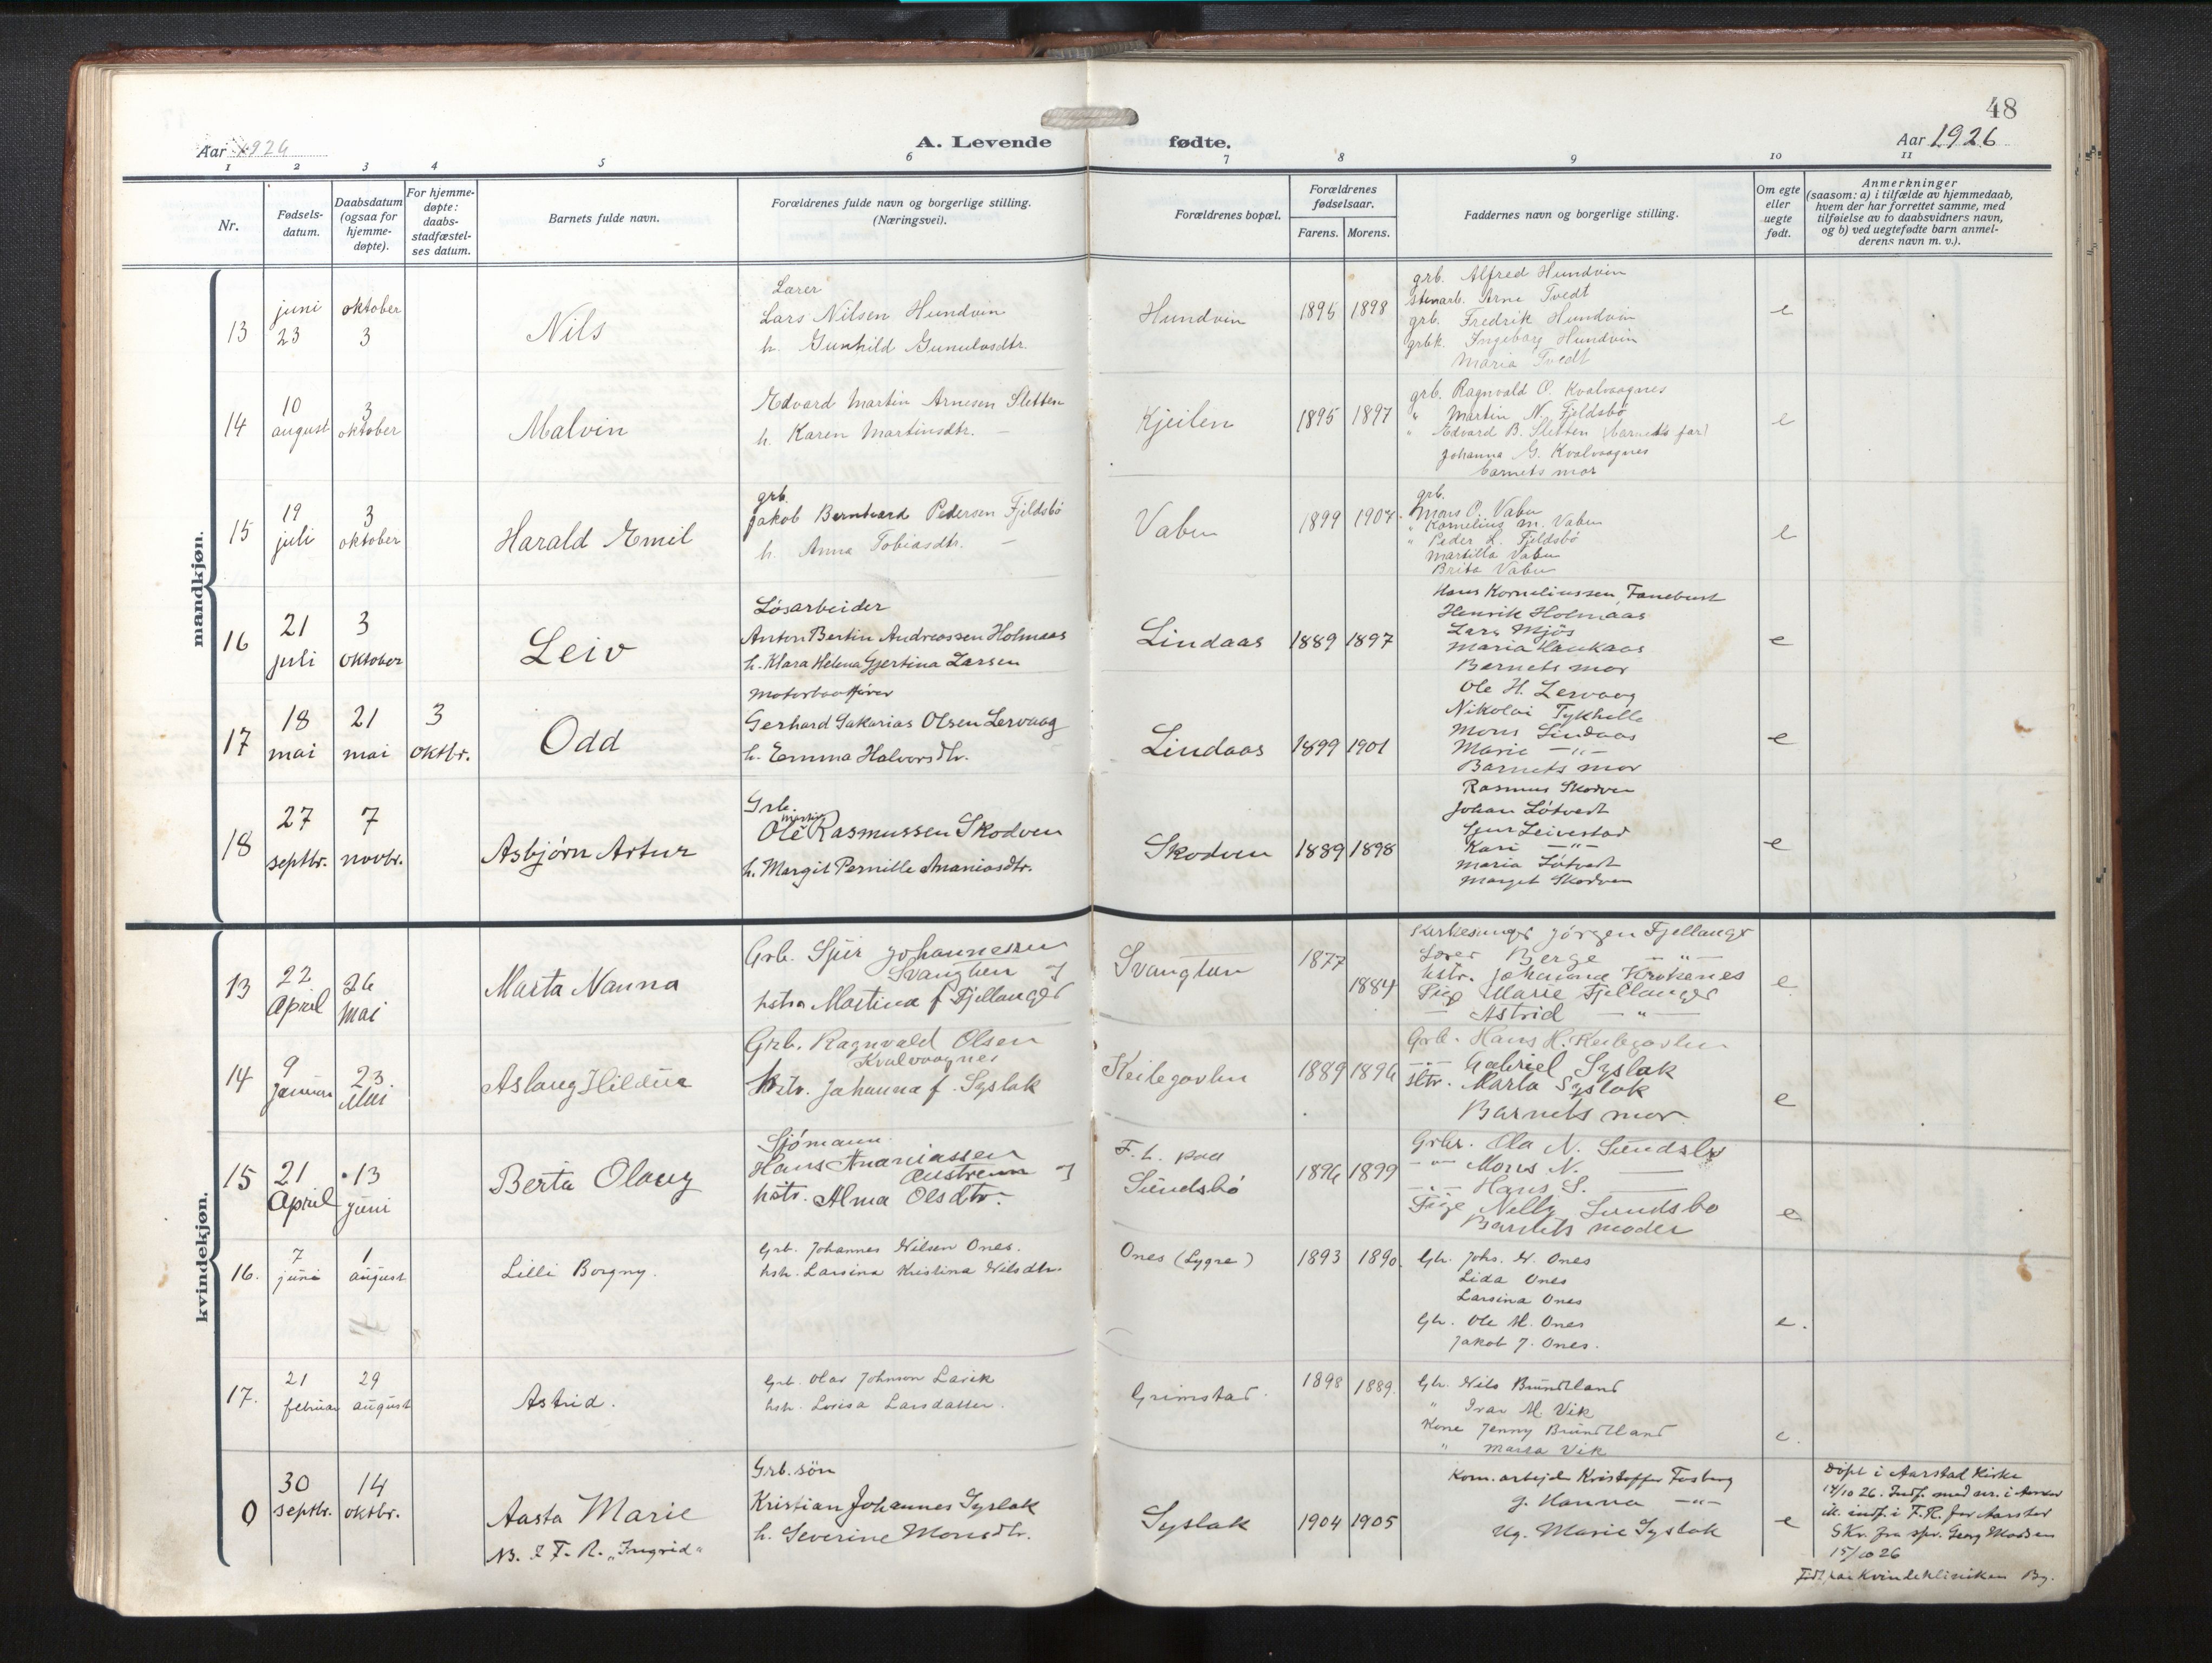 48
Aar 1926
A. Levende fødte.
Aar 1926
1 2 3 4 5 6 7 8 9 10 11
Nr.
Fødsels-
datum.
Daabsdatum
(ogsaa for
hjemme-
døpte).
For hjemme-
døpte:
daabs-
stadfæstel-
ses datum.
Barnets fulde navn.
Forældrenes fulde navn og borgerlige stilling.
(Næringsvei).
Forældrenes bopæl.
Forældrenes
fødselsaar.
Farens. Morens.
Faddernes navn og borgerlige stilling.
Om egte
eller
uegte
født.
Anmerkninger
(saasom: a) i tilfælde av hjemmedaab,
hvem der har forrettet samme, med
tilføielse av to daabsvidners navn,
og b) ved uegtefødte barn anmel-
derens navn m. v.).
mandkjøn.
13
juni
23
oktober
3
Nils
Lærer
Lars Nilsen Hundvin
h. Gunhild Gunulvsdtr.
Hundvin
1895 1898
grb. Alfred Hundvin
stenarb. Arne Tvedt
grb. Fredrik Hundvin
grbk. Ingeborg Hundvin
Maria Tvedt
e
14
10
august
3
oktober
Malvin
Edvard Martin Arnesen Sletten
h. Karen Martinsdtr. —
Kjeilen
1895 1897
grb. Ragnvald O. Kvalvaagnes
" Martin N. Fjeldsbø
" Edvard B. Sletten (barnets far)
Johanna G. Kvalvaagnes
barnets mor
e
15
19
juli
3
oktober
Harald Emil
grb.
Jakob Bernhard Pedersen Fjeldsbø
h. Anna Tobiasdtr. —
Vabu
1899 1904
grb.
Mons O. Vabu
" Kornelius M. Vabu
" Peder L. Fjeldsbø
Martilla Vabu
Brita Vabu
e
16
21
juli
3
oktober
Leiv
Løsarbeider
Anton Bertin Andreassen Holmaas
h. Klara Helena Gjertina Larsen
Lindaas
1889 1897
Hans Korneliussen Fanebust
Henrik Holmaas
Lars Mjøs
Maria Haukaas
Barnets mor
e
17
18
mai
21
mai
3
oktbr.
Odd
Motorbaatfører
Gerhard Sakarias Olsen Lervaag
h. Emma Halvorsdtr.
Lindaas
1899 1901
Ole H. Lervaag
Nikolai Tykhelle
Mons Lindaas
Marie —"—
Barnets mor
e
18
27
septbr.
7
novbr.
Asbjørn Artur
Grb.
Martin
Ole Rasmussen Skodven
h. Margit Pernille Ananiasdtr.
Skodven
1889 1898
Rasmus Skodven
Johan Løtvedt
Sjur Leivestad
Kari —"—
Maria Løtvedt
Marget Skodven
e
kvindekjøn.
13
22
April
26
Mai
Marta Nanna
Grb. Sjur Johannessen
Svangtun
hstru Martina f. Fjellanger
Svangtun
1877
1884
Kirkesanger Jørgen Fjellanger
Lærer Berge —"—
hstr. Johanna Krokenes
Pige Marie Fjellanger
— Astrid —"—
e
14
9
Januar
23.
Mai
Aslaug Hildur
Grb. Ragnvald Olsen
Kvalvaagnes
hstr. Johanna f. Syslak
Keilegavlen
1889 1896
Grb. Hans H. Keilegavlen
—"— Gabriel Syslak
hstr. Marta Syslak
Barnets mor
e
15
21
April
13
juni
Berta Olaug
Sjømann
Hans Ananiassen
Austreim
hstr. Alma Olsdtr.
F. h. paa
Sundsbø
1896 1899
Grbr. Ola N. Sundsbø
—"— Mons N. ——
—"— Hans S. ——
Pige Nelly Sundsbø
Barnets moder
e
16.
7
juni
1
august
Lilli Borgny.
Grb. Johannes Nilsen Ones.
hstr. Larsina Kristina Nilsdtr.
Ones (Lygre)
1893 1890.
Gbr. Johs. N. Ones
Lida Ones
Larsina Ones
Gbr. Ole M. Ones
Jakob J. Ones.
e.
17.
21
februar
29
august
Astrid.
Grb. Olav Johnson Larik
hstr. Lovisa Larsdatter.
Grimstad.
1898 1889.
Gbr. Nils Brundtland
" Ivar M. Vik
Kone Jenny Brundtland
" Marta Vik
e.
0
30
septbr.
14
oktbr.
Aasta Marie
NB. I F. R. "Ingrid"
Grb. søn
Kristian Johannes Syslak
h. Severine Monsdtr.
Syslak
1904 1905
Kom. arbejder Kristoffer Fosberg
g. Hanna —"—
ug. Marie Syslak
e
Døpt i Aarstad Kirke
14/10 26. Indf. med nr. i Aarstad
ik. indf. i F.R. for Aarstad
SKr. fra spr. Georg Madsen
15/10 26
Født paa Kvindeklinikken Bg.